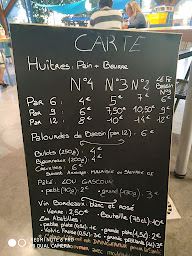 CARTE
Huîtres: Pain + Beurre
N°4 N°3 N°2
PAR 6 : 4€ 5€ 7€
PAR 9 : 6€ 7,50€ 10,50€ 9€
PAR 12 : 8€ 10€ 14€ 12€
Palourdes du Bassin (par 12) : 6€
Bulots (250g) : 4€
Bigorneaux (200g) : 4€
Crevettes : 6€
Pâté : LOU GASCOUN
- petit (90g) 2€ - grand (190g) : 3€
Vin Bordeaux blanc et rosé
- Verre : 2,50€ - Bouteille (75cl) : 10€
Les Abatilles
- petite plate
REDMI NOTE 8 PRO
AI QUAD CAMERA